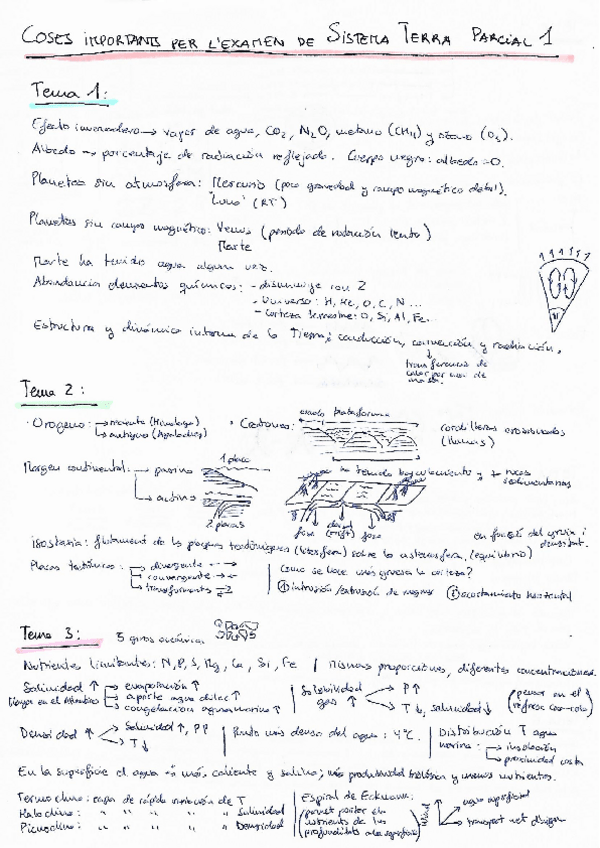 COSES IMPORTANTS PER L'EXAMEN DE SISTEMA TERRA PARCIAL 1
Tema 1:
Efecto invernadero → vapor de agua, CO2, N2O, metano (CH4) y ozono (O3).
Albedo → porcentaje de radiación reflejado. Cuerpo negro: albedo=0.
Planetas sin atmosfera: Mercurio (poca gravedad y campo magnético débil).
"Luna"
Planetas sin campo magnético: Venus (periodo de rotación lento)
Marte
Marte ha tenido agua alguna vez.
Abundancia elementos químicos: - disminuye con Z
- Universo: H, He, O, C, N ...
- Corteza terrestre: O, Si, Al, Fe..
Estructura y dinámica interna de la Tierra: conducción, convección y radiación.
↓
transferencia de
calor por
Tema 2:
· Orogeno: → reciente (Himalaya)
→ antiguo (Apalaches)
· Cratones:
escudo plataforma
cordilleras erosionadas
(llanuras)
Margen continental: → pasivo
→ activo
1 placa
2 placas
y + rocas
sedimentarias
fosa dorsal (rift) fosa
isostasia: de las placas tectónicas (litosfera) sobre la astenosfera, (equilibrio) en función del
Placas tectónicas: → divergente ← →
→ convergente → ←
→ transformante
Como se hace más gruesa la corteza?
① intrusión/extrusión de magma ② acortamiento horizontal
Tema 3: 5 giros oceánicos
Nutrientes limitantes: N, P, S, Mg, Ca, Si, Fe / mismas proporciones, diferentes concentraciones.
Salinidad ↑ → evaporación ↑
→ aporte agua dulce ↑
→ congelación agua marina ↑
Solubilidad gas ↑ → P ↑
→ T ↓, salinidad ↓
(pensar en el
refresco coca-cola)
Densidad ↑ → Salinidad ↑, P↑
→ T ↓
Punto más denso del agua: 4°C.
Distribución T agua
marina: → insolación
→ proximidad costa
En la superficie el agua más caliente y salina; más productividad biológica y menos nutrientes.
Termoclina: capa de rápida variación de T
Haloclina: " " " " Salinidad
Picnoclina: " " " " Densidad
Espiral de Eckmann:
(permet portar els
nutrients de les
profunditats a la superfície)
Wind
agua superficial
transport net d'aigua